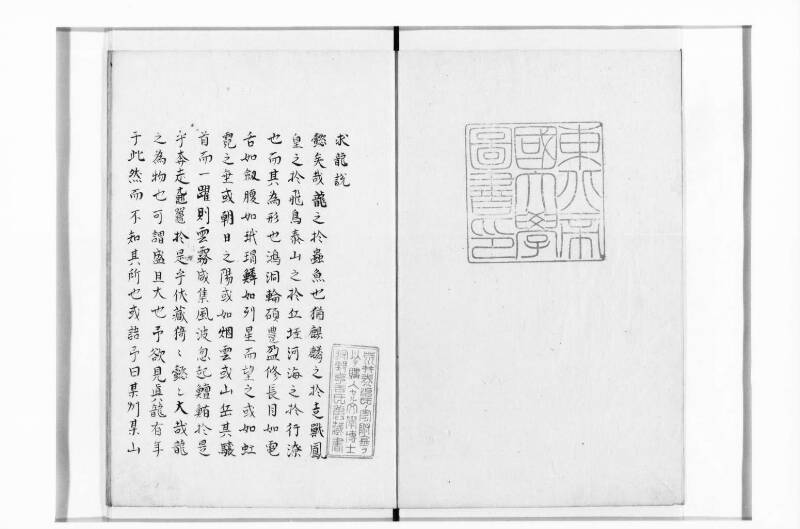 東京帝
國大學
圖書印
求龍說
懿矣哉龍之於蟲魚也猶麒麟之於走獸鳳
皇之於飛鳥泰山之於丘垤河海之於行潦
也而其為形也鴻洞輪碩豐盈修長目如電
舌如劔腰如玳瑁鱗如列星而望之或如虹
霓之垂或朝日之陽或如烟雲或山岳其驤
首而一躍則雲霧咸集風波忽起鱣鮪於是
乎奔走黿鼉於是乎伏藏倚〻懿〻大哉龍
之為物也可謂盛且大也予欲見眞龍有年
于此然而不知其所也或詰予曰某州某山
氏ノ寄贈金ヲ
以テ購入セル文學博士
氏舊藏書